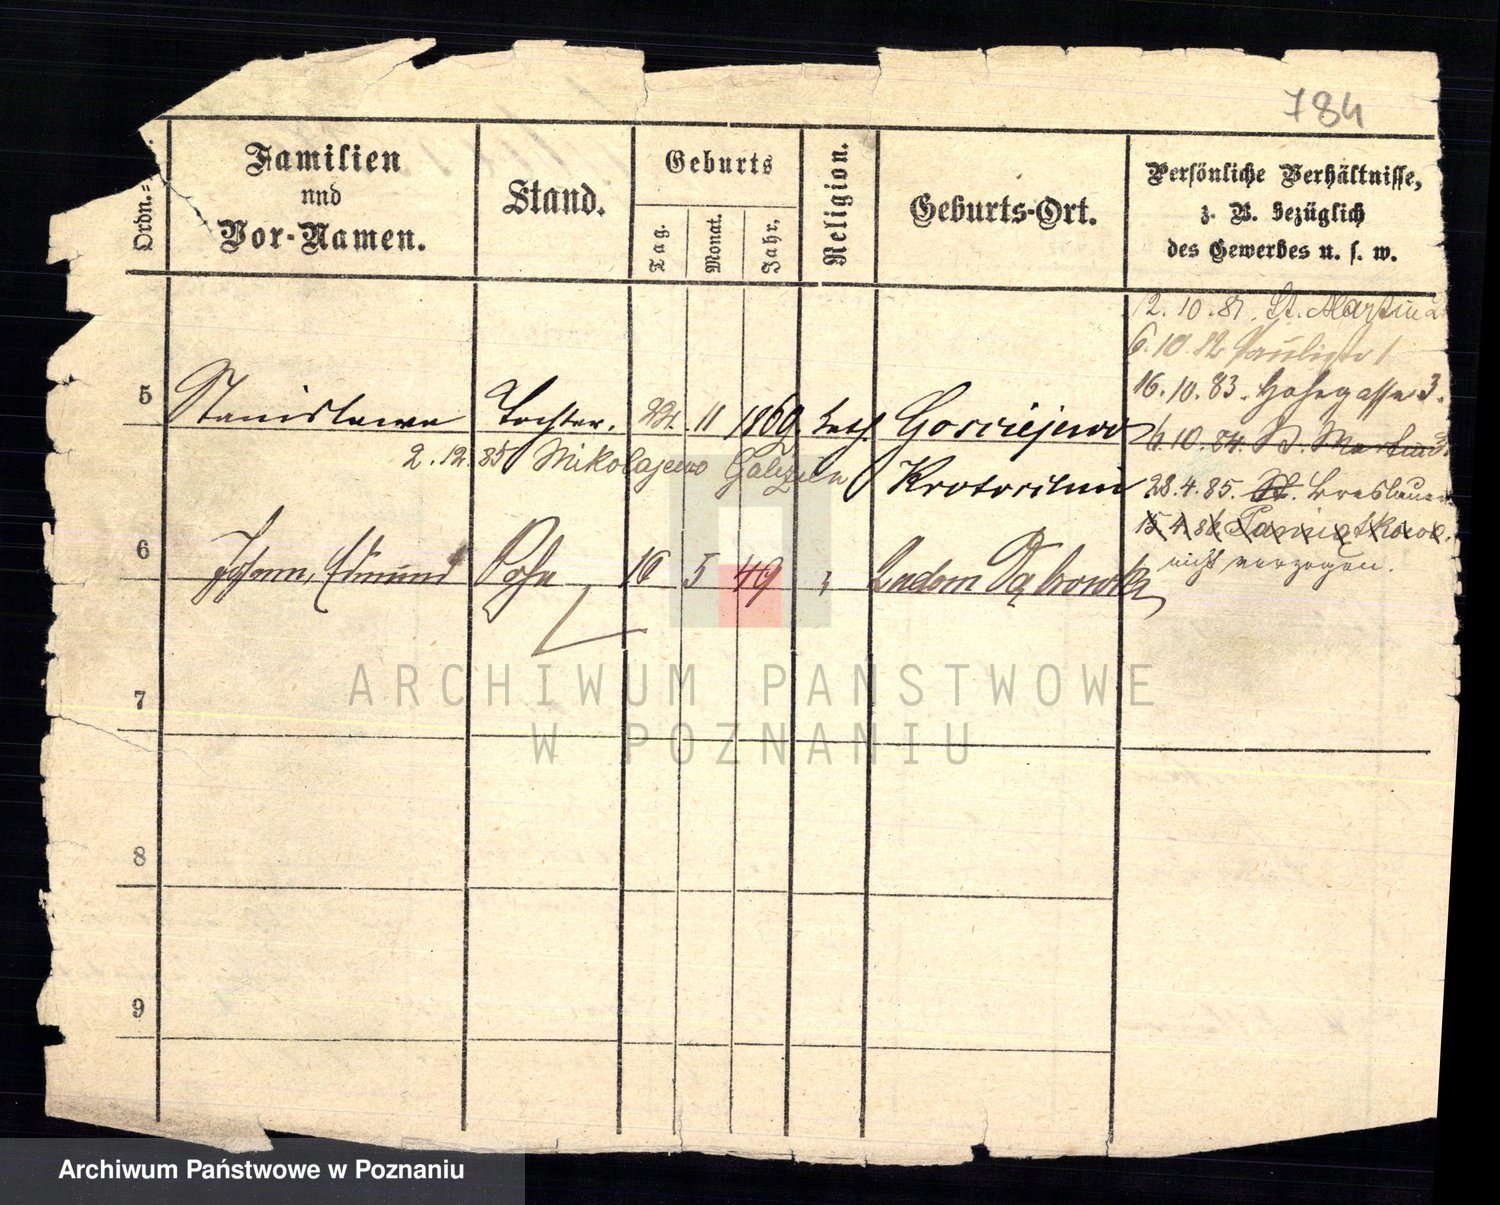 784
Ordn.=
Familien
und
Vor-Namen.
Stand.
Geburts
Tag.
Monat.
Jahr.
Religion.
Geburts-Ort.
Persönliche Verhältnisse,
z. B. bezüglich
des Gewerbes u. s. w.
12.10.81. St. Martin 2
6.10.82 Paulistr 1
16.10.83. Hohegasse 3.
5 Stanislawa Tochter. 22. 11 1869. kath. Gorciejewo
6.10.84. St. Martin
2.12.85 Mikolajewo Galizien
28.4.85. St. Breslauer
15 4 86
6 Johann, Edmund Sohn 16 5 49 " Radom
nicht verzogen.
7
8
9
ARCHIWUM PAŃSTWOWE
W POZNANIU
Archiwum Państwowe w Poznaniu